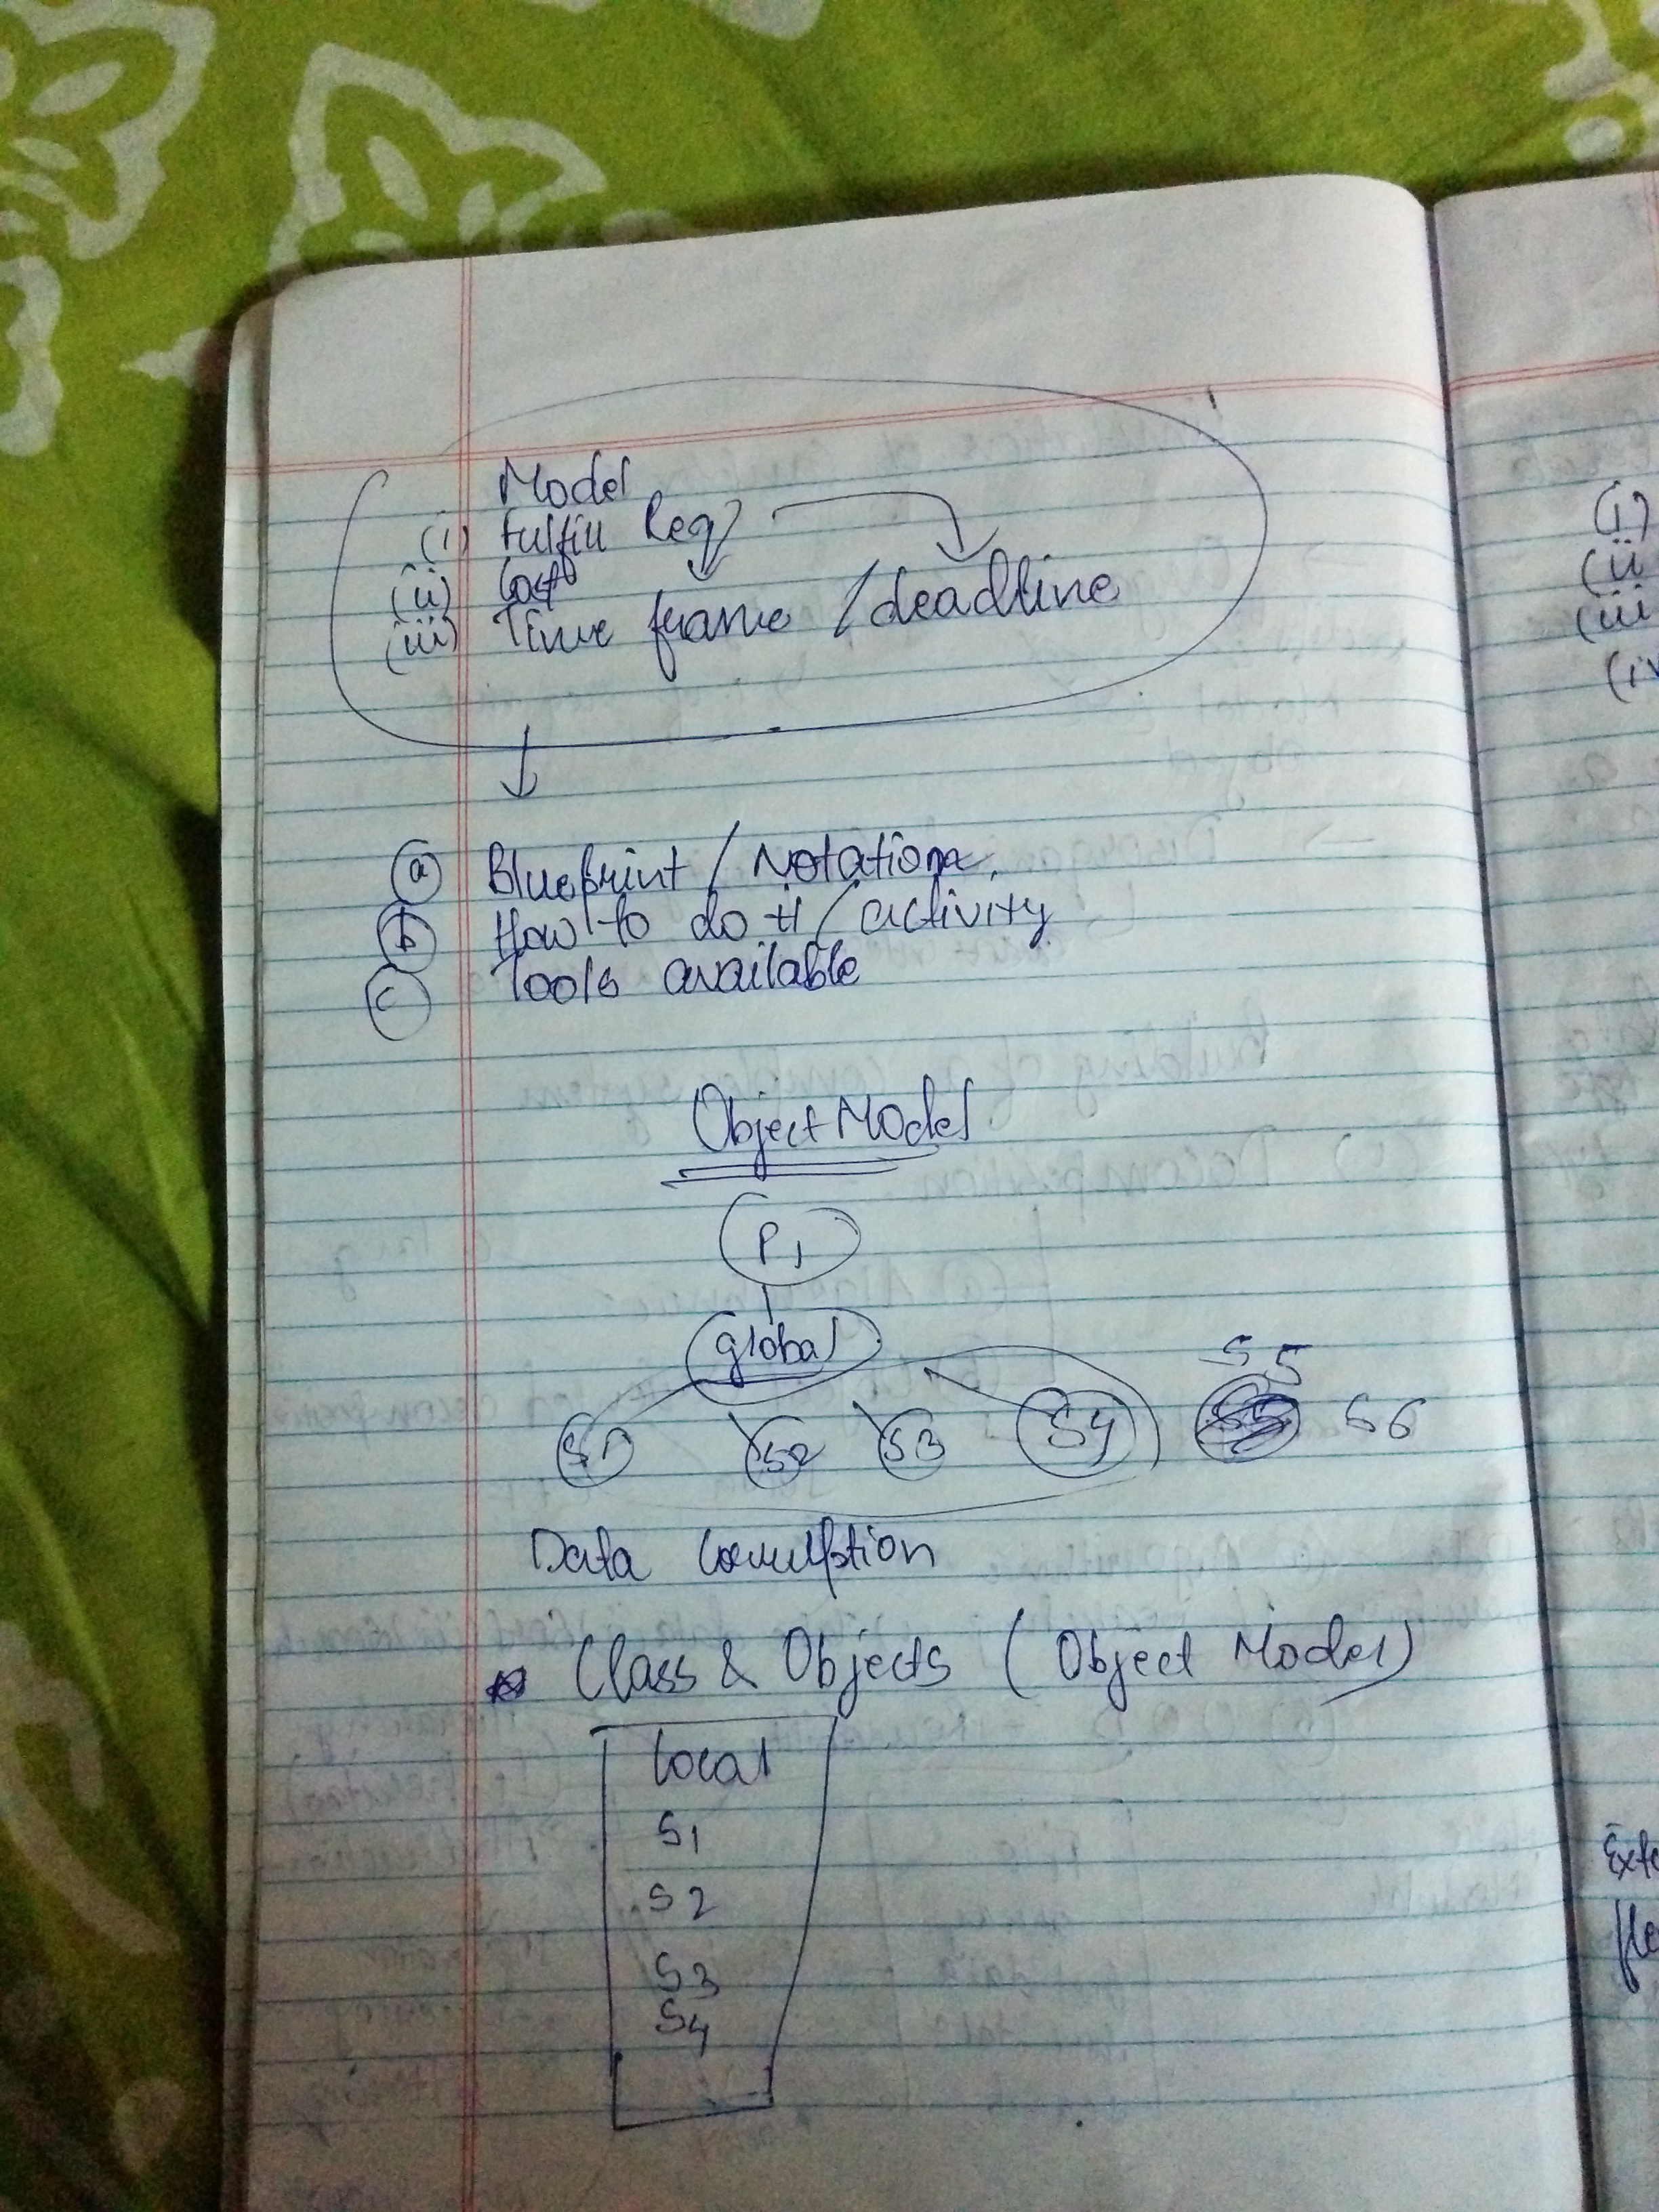 Model
(i) Fulfill Req
(ii) Cost
(iii) Time frame / deadline
(a) Blueprint / Notation
(b) How to do it / activity
(c) Tools available
Object Model
P1
global
S1 S2 S3 S4 S5 S6
Data Corruption
Class & Objects ( Object Model )
local
S1
S2
S3
S4
(i)
(ii
(iii
(iv